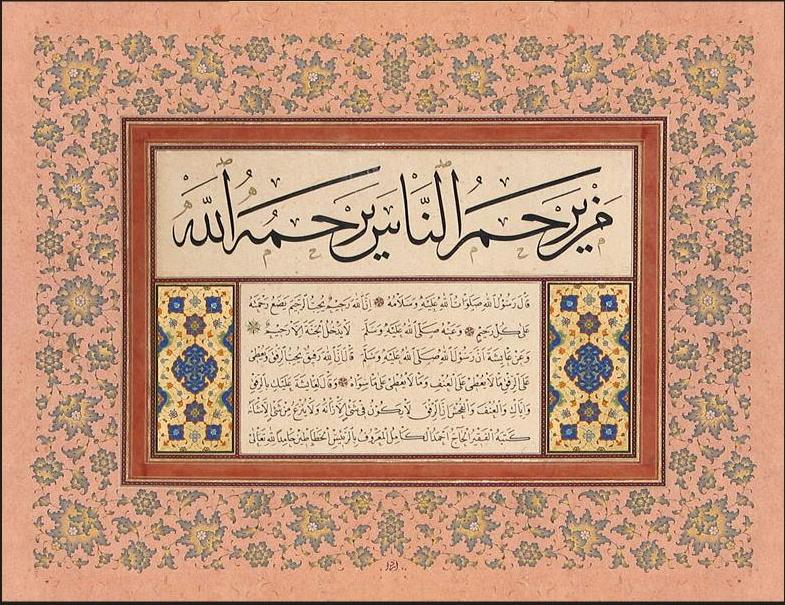 من يرحم الناس يرحمه الله
قال رسول الله صلوات الله عليه وسلامه ان الله رحيم يحب الرحيم يضع رحمته
على كل رحيم وعنه صلى الله عليه وسلم لا يدخل الجنة الا رحيم
وعن عائشة ان رسول الله صلى الله عليه وسلم قال ان الله رفيق يحب الرفق ويعطى
على الرفق ما لا يعطى على العنف وما لا يعطى على ما سواه وقال لعائشة عليك بالرفق
واياك والعنف والفحش ان الرفق لا يكون فى شئ الا زانه ولا ينزع من شئ الا شانه
كتبه الفقير الحاج احمد الكامل المعروف برئيس الخطاطين حامدا لله تعالى